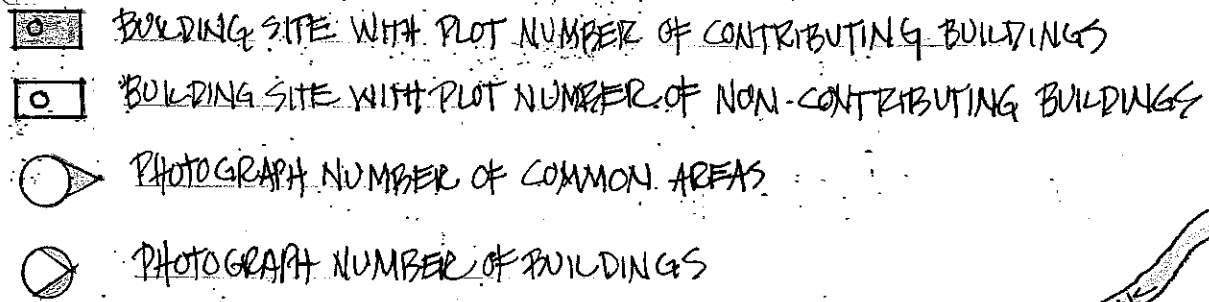 BUILDING SITE WITH PLOT NUMBER OF CONTRIBUTING BUILDINGS
BUILDING SITE WITH PLOT NUMBER OF NON-CONTRIBUTING BUILDINGS
PHOTOGRAPH NUMBER OF COMMON AREAS
PHOTOGRAPH NUMBER OF BUILDINGS